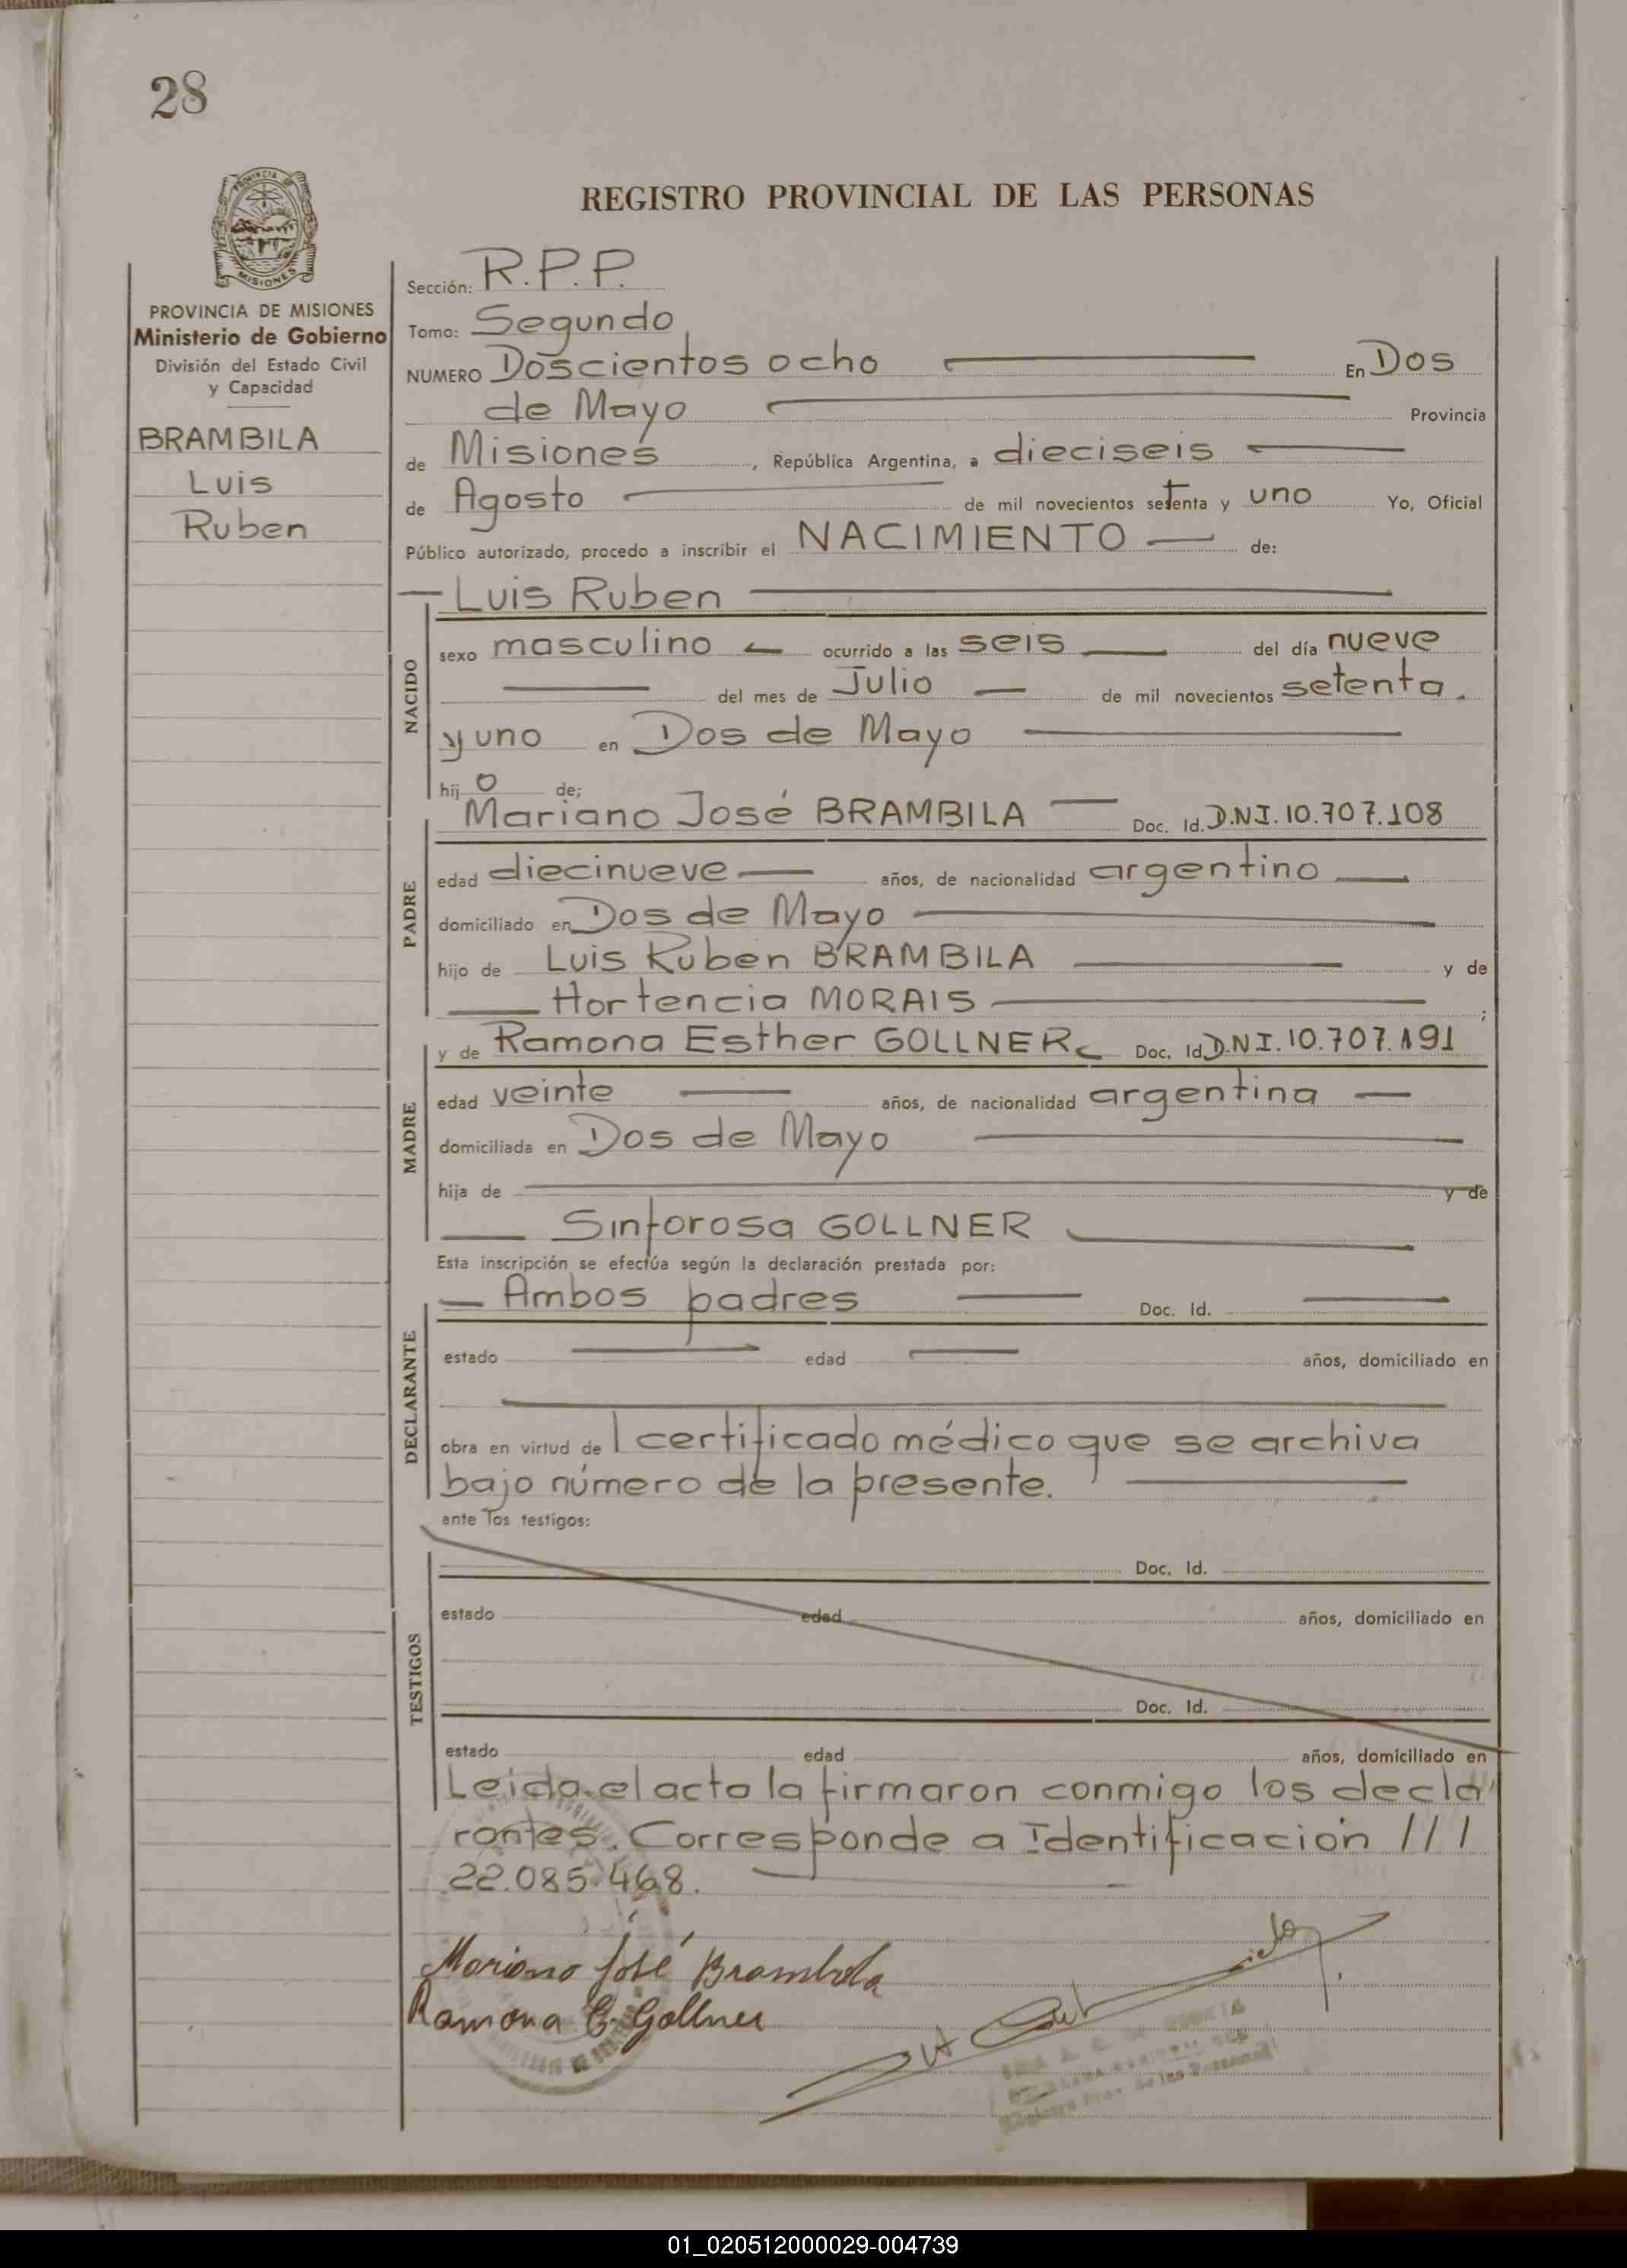 28
PROVINCIA DE
MISIONES
REGISTRO PROVINCIAL DE LAS PERSONAS
PROVINCIA DE MISIONES
Ministerio de Gobierno
División del Estado Civil
y Capacidad
BRAMBILA
Luis
Ruben
Sección: R.P.P.
Tomo: Segundo
NUMERO Doscientos ocho En Dos
de Mayo Provincia
de Misiones, República Argentina, a dieciseis
de Agosto de mil novecientos setenta y uno Yo, Oficial
Público autorizado, procedo a inscribir el NACIMIENTO de:
Luis Ruben
NACIDO
sexo masculino ocurrido a las seis del día nueve
del mes de Julio de mil novecientos setenta
y uno en Dos de Mayo
hijo de;
Mariano José BRAMBILA Doc. Id. D.N.I. 10.707.108
PADRE
edad diecinueve años, de nacionalidad argentino
domiciliado en Dos de Mayo
hijo de Luis Ruben BRAMBILA y de
Hortencia MORAIS ;
y de Ramona Esther GOLLNER Doc. Id D.N.I. 10.707.191
MADRE
edad veinte años, de nacionalidad argentina
domiciliada en Dos de Mayo
hija de y de
Sinforosa GOLLNER
Esta inscripción se efectúa según la declaración prestada por:
Ambos padres Doc. Id.
DECLARANTE
estado edad años, domiciliado en
obra en virtud de 1 certificado médico que se archiva
bajo número de la presente.
ante los testigos:
TESTIGOS
Doc. Id.
estado edad años, domiciliado en
Doc. Id.
estado edad años, domiciliado en
Leida el acta la firmaron conmigo los decla
rantes. Corresponde a Identificación ///
22.085.468.
Mariano José Brambila
Ramona E. Gollner
01_020512000029-004739